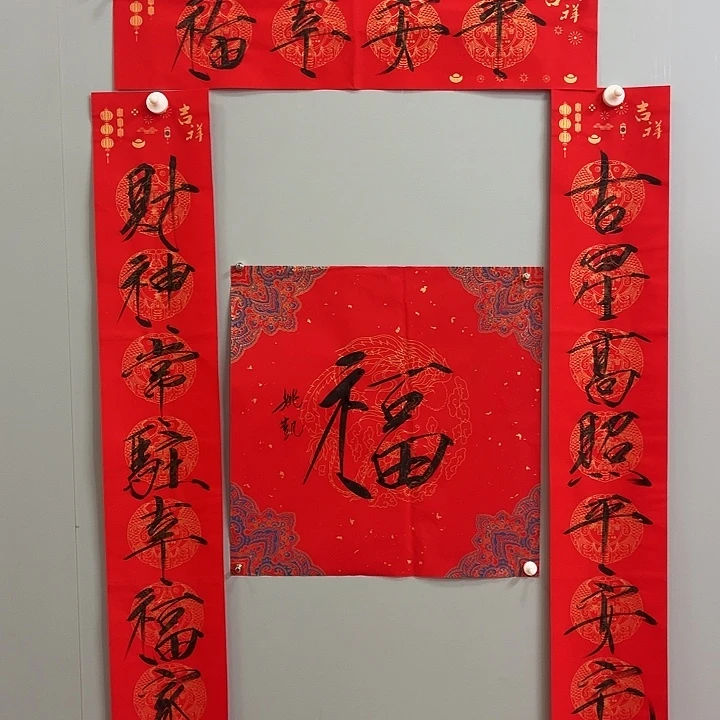 平安幸福
吉祥
吉祥
吉星高照平安宅
吉祥
財神常駐幸福家
福
姚凱